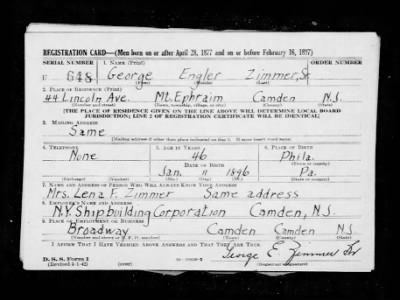 REGISTRATION CARD—(Men born on or after April 28, 1877 and on or before February 16, 1897)
SERIAL NUMBER 1. NAME (Print) ORDER NUMBER
U 648 George Engler Zimmer, Sr.
2. PLACE OF RESIDENCE (Print)
44 Lincoln Ave. Mt. Ephraim Camden N.J.
(Number and street) (Town, township, village, or city) (County) (State)
[THE PLACE OF RESIDENCE GIVEN ON THE LINE ABOVE WILL DETERMINE LOCAL BOARD
JURISDICTION; LINE 2 OF REGISTRATION CERTIFICATE WILL BE IDENTICAL]
3. MAILING ADDRESS
Same
(Mailing address if other than place indicated on line 2. If same insert word same)
4. TELEPHONE 5. AGE IN YEARS 6. PLACE OF BIRTH
None 46 Phila.
DATE OF BIRTH
Jan. 11 1896 Pa.
7. NAME AND ADDRESS OF PERSON WHO WILL ALWAYS KNOW YOUR ADDRESS
Mrs. Lena F. Zimmer Same address
8. EMPLOYER'S NAME AND ADDRESS
N.Y. Shipbuilding Corporation Camden, N.J.
9. PLACE OF EMPLOYMENT OR BUSINESS
Broadway Camden Camden N.J.
I AFFIRM THAT I HAVE VERIFIED ABOVE ANSWERS AND THAT THEY ARE TRUE.
D. S. S. Form 1 George E. Zimmer Sr
(Revised 4-1-42) (Registrant's signature)